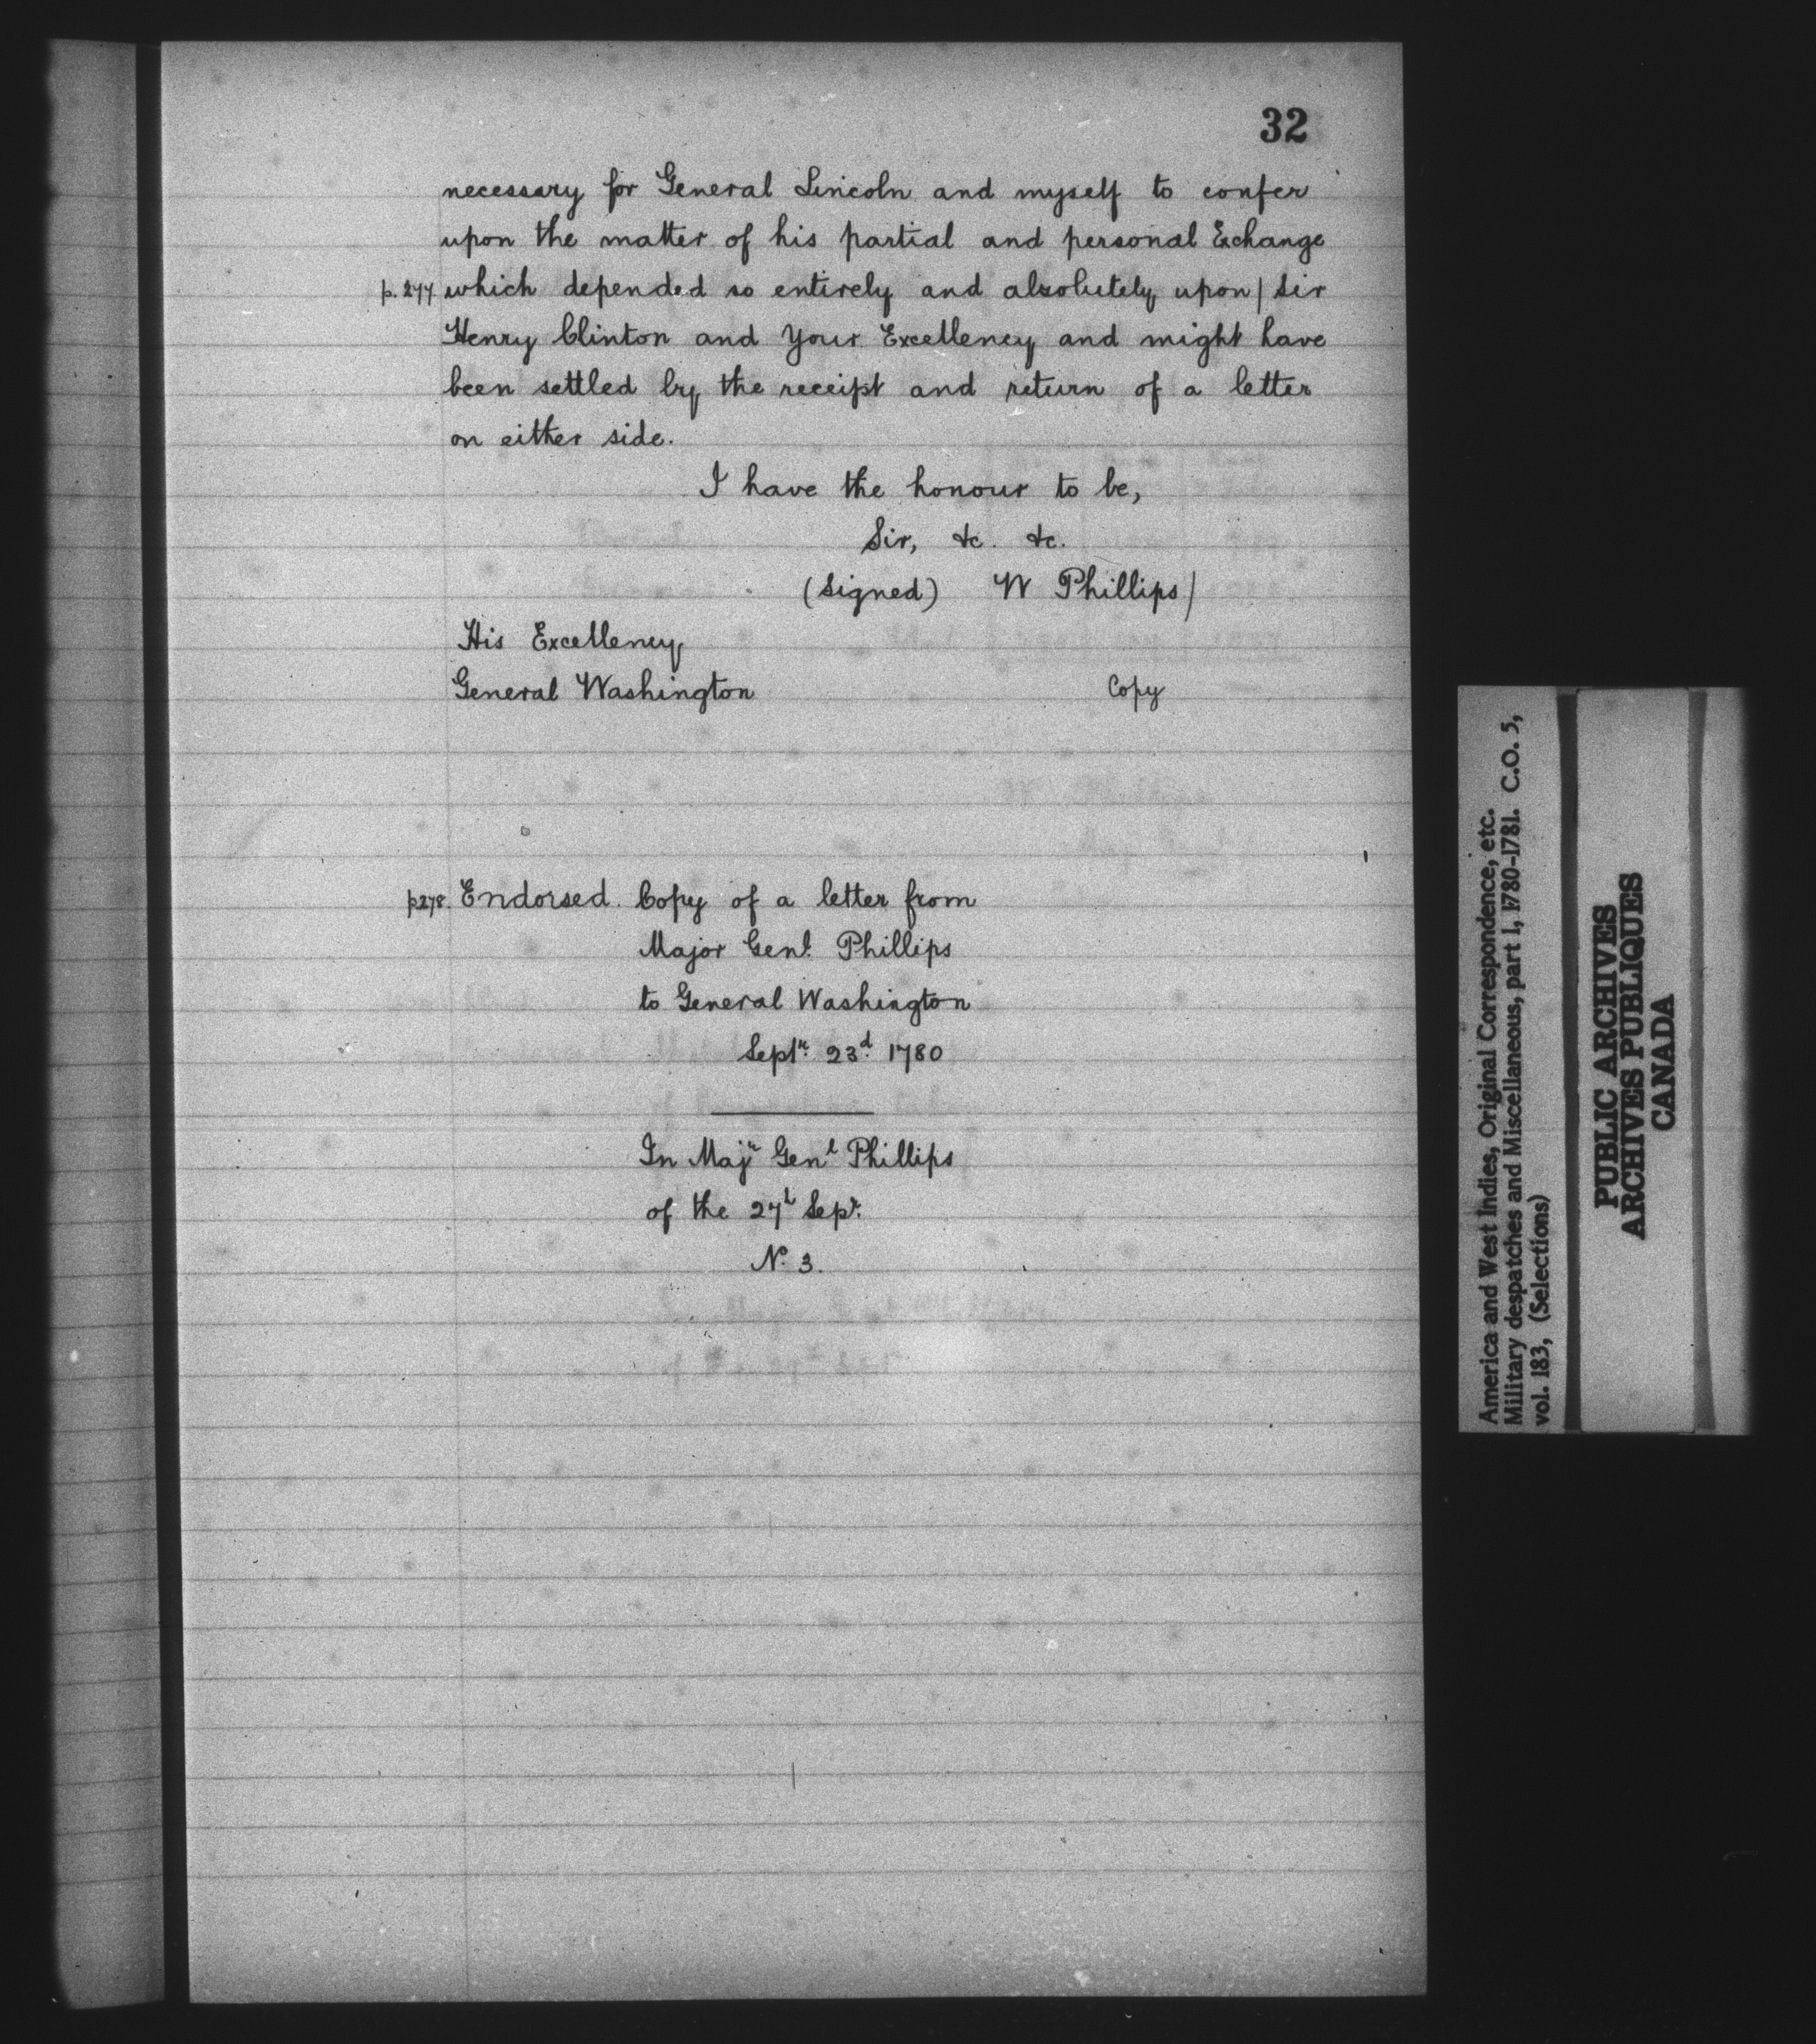 32
necessary for General Lincoln and myself to confer
upon the matter of his partial and personal Exchange
p. 277 which depended so entirely and absolutely upon / Sir
Henry Clinton and Your Excellency and might have
been settled by the receipt and return of a letter
on either side.
I have the honour to be,
Sir, &c. &c.
(signed) W Phillips /
His Excellency
General Washington Copy
p278. Endorsed. Copy of a letter from
Major Genl. Phillips
to General Washington
Septr. 23d. 1780
In Majr Genl Phillips
of the 27t Sepr.
No. 3.
America and West Indies, Original Correspondence, etc.
Military despatches and Miscellaneous, part 1, 1780-1781. C.O. 5,
vol. 183, (Selections)
PUBLIC ARCHIVES
ARCHIVES PUBLIQUES
CANADA